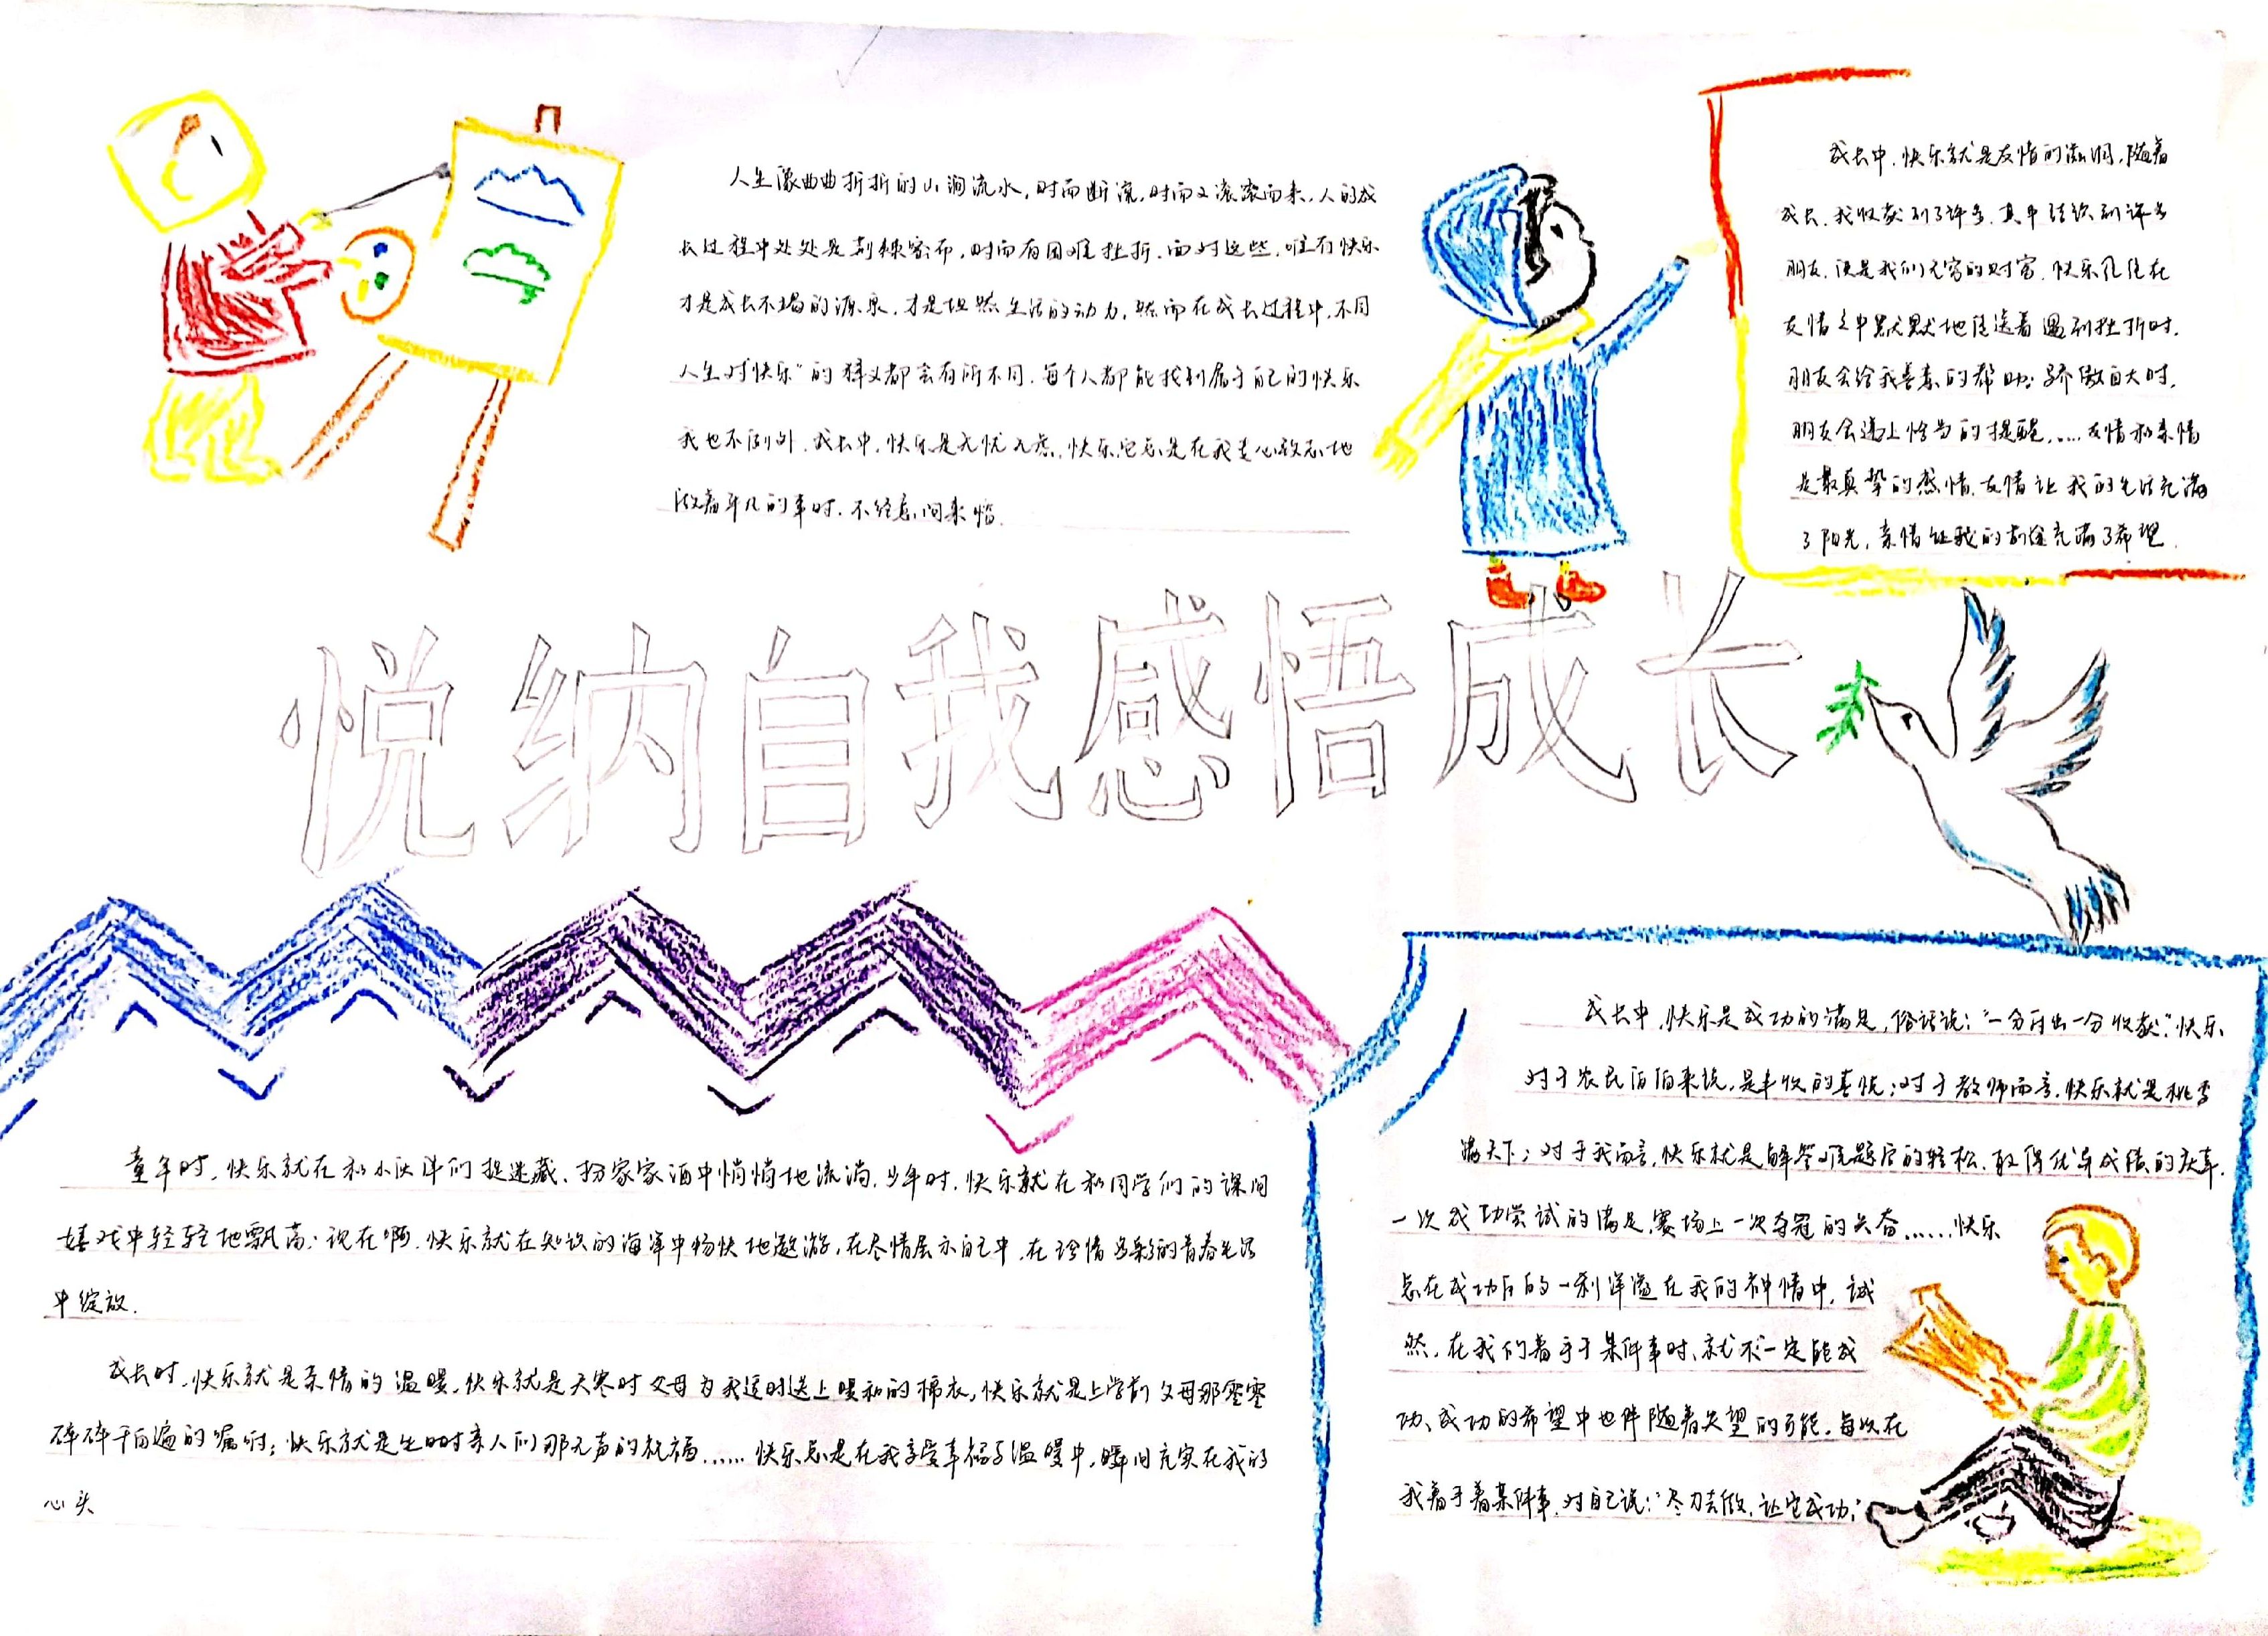 人生像曲曲折折的山涧流水，时而断流，时而又滚滚而来，人的成
长过程中处处是荆棘密布，时而有困难挫折，面对这些，唯有快乐
才是成长不竭的源泉，才是坦然生活的动力，然而在成长过程中，不同
人生对“快乐”的释义都会有所不同，每个人都能找到属于自己的快乐
我也不例外，成长中，快乐是无忧无虑，快乐它总是在我专心致志地
做着平凡的事时，不经意间来临
成长中，快乐就是友情的滋润，随着
成长，我收获到了许多，其中结识到许多
朋友，该是我们无穷的财富，快乐凡住在
友情之中默默地传送着 遇到挫折时，
朋友会给我善意的帮助；骄傲自大时，
朋友会递上恰当的提醒……友情和亲情
是最真挚的感情，友情让我的生活充满
了阳光，亲情让我的前途充满了希望．
悦纳自我感悟成长
童年时，快乐就在和小伙伴们捉迷藏、扮家家酒中悄悄地流淌，少年时，快乐就在和同学们的课间
嬉戏中轻轻地飘荡；现在啊，快乐就在知识的海洋中畅快地遨游，在尽情展示自己中，在珍惜多彩的青春生活
中绽放．
成长时，快乐就是亲情的温暖，快乐就是天寒时父母为我适时送上暖和的棉衣，快乐就是上学前父母那零零
碎碎千百遍的嘱咐；快乐就是生日时亲人们那无声的祝福……快乐总是在我享受幸福与温暖中，瞬间充实在我的
心头
成长中，快乐是成功的满足，俗话说：“一分付出一分收获．”快乐
对于农民伯伯来说，是丰收的喜悦；对于教师而言，快乐就是桃李
满天下；对于我而言，快乐就是解答难题后的轻松，取得优异成绩的庆幸，
一次成功尝试的满足，赛场上一次夺冠的兴奋……快乐
总在成功后的一刹洋溢在我的神情中，诚
然，在我们着手于某件事时，就不一定能成
功、成功的希望中也伴随着失望的可能，每次在
我着手着某件事，对自己说：“尽力去做，让它成功；